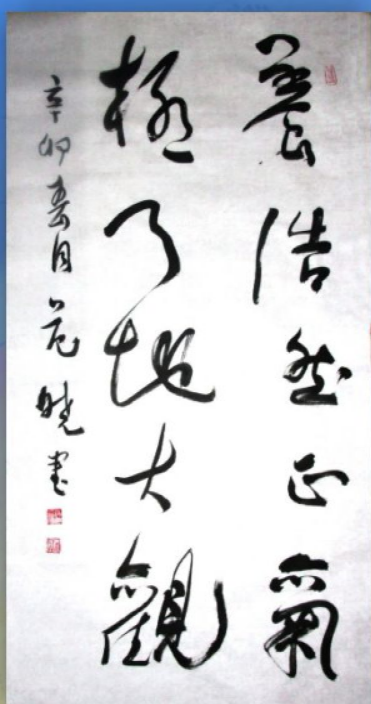 養浩然正氣
極天地大觀
辛卯春月范曉書